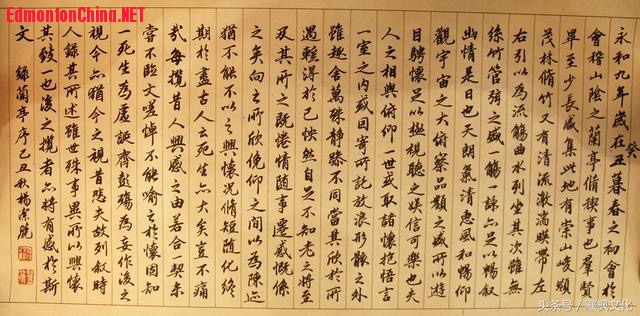 EdmontonChina.NET
癸
永和九年歲在丑暮春之初會於
會稽山陰之蘭亭脩稧事也羣賢
畢至少長咸集此地有崇山峻領
茂林脩竹又有清流激湍暎帶左
右引以為流觴曲水列坐其次雖無
絲竹管弦之盛一觴一詠亦足以暢叙
幽情是日也天朗氣清惠風和暢仰
觀宇宙之大俯察品類之盛所以遊
目騁懷足以極視聽之娛信可樂也夫
人之相與俯仰一世或取諸懷抱悟言
一室之內或因寄所託放浪形骸之外
雖趣舍萬殊靜躁不同當其欣於所
遇輒得於己怏然自足不知老之將至
及其所之既惓情隨事遷感慨係
之矣向之所欣俛仰之間以為陳迹
猶不能不以之興懷況脩短隨化終
期於盡古人云死生亦大矣豈不痛
哉每攬昔人興感之由若合一契未
嘗不臨文嗟悼不能喻之於懷固知
一死生為虛誕齊彭殤為妄作後之
視今亦猶今之視昔悲夫故列叙時
人錄其所述雖世殊事異所以興懷
其致一也後之攬者亦將有感於斯
文 錄蘭亭序己丑秋楊
头条号/寒枫文化